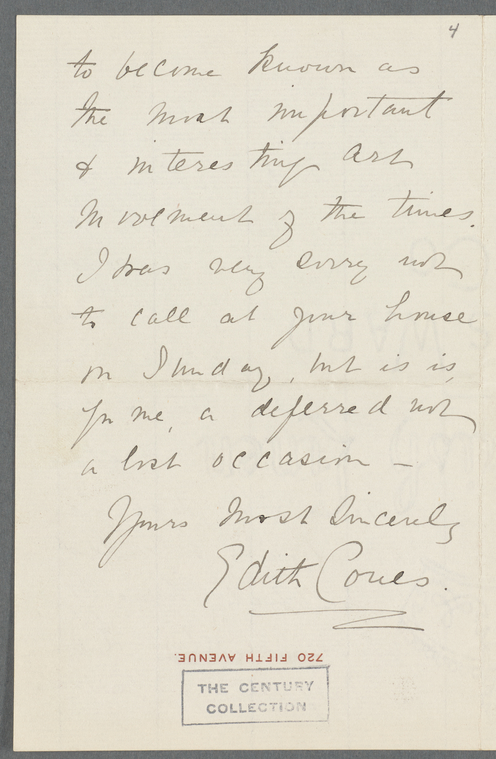 4
to become known as
the most important
& interesting art
movement of the times.
I was very sorry not
to call at your house
on Sunday, but is is,
for me, a deferred not
a lost occasion —
Yours most sincerely
Edith Coues.
720 FIFTH AVENUE.
THE CENTURY
COLLECTION